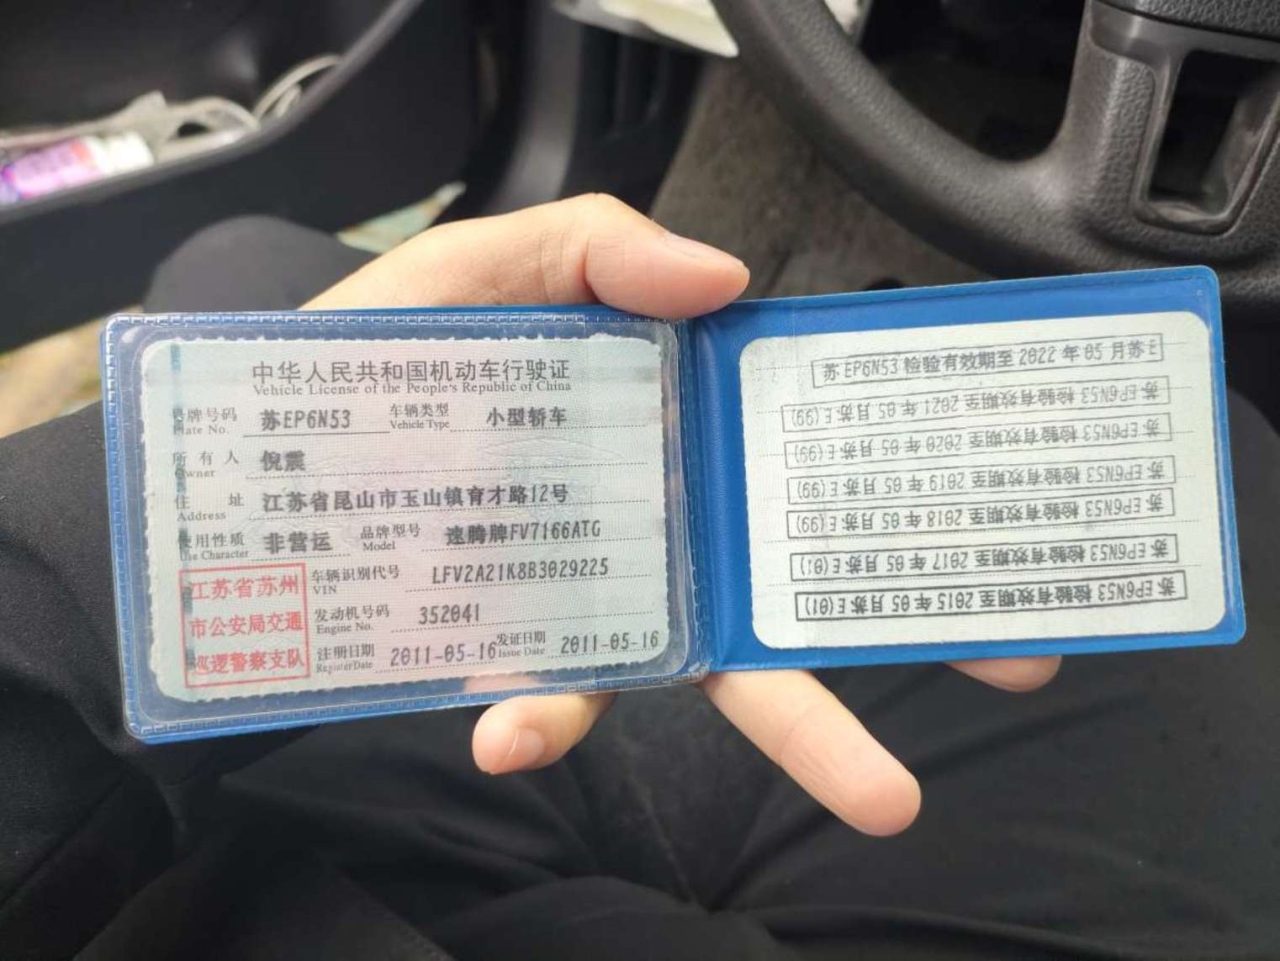 中华人民共和国机动车行驶证
Vehicle License of the People's Republic of China
号牌号码 苏EP6N53 车辆类型 小型轿车
Plate No. Vehicle Type
所有人 倪震
Owner
住址 江苏省昆山市玉山镇育才路12号
Address
使用性质 非营运 品牌型号 速腾牌FV7166ATG
Use Character Model
江苏省苏州
市公安局交通
巡逻警察支队
车辆识别代号 LFV2A21K8B3029225
VIN
发动机号码 352041
Engine No.
注册日期 2011-05-16 发证日期 2011-05-16
Register Date Issue Date
苏EP6N53 检验有效期至 2022 年 05 月 苏E
苏EP6N53 检验有效期至 2021 年 05 月 苏E(99)
苏EP6N53 检验有效期至 2020 年 05 月 苏E(99)
苏EP6N53 检验有效期至 2019 年 05 月 苏E(99)
苏EP6N53 检验有效期至 2018 年 05 月 苏E(99)
苏EP6N53 检验有效期至 2017 年 05 月 苏E(01)
苏EP6N53 检验有效期至 2015 年 05 月 苏E(01)